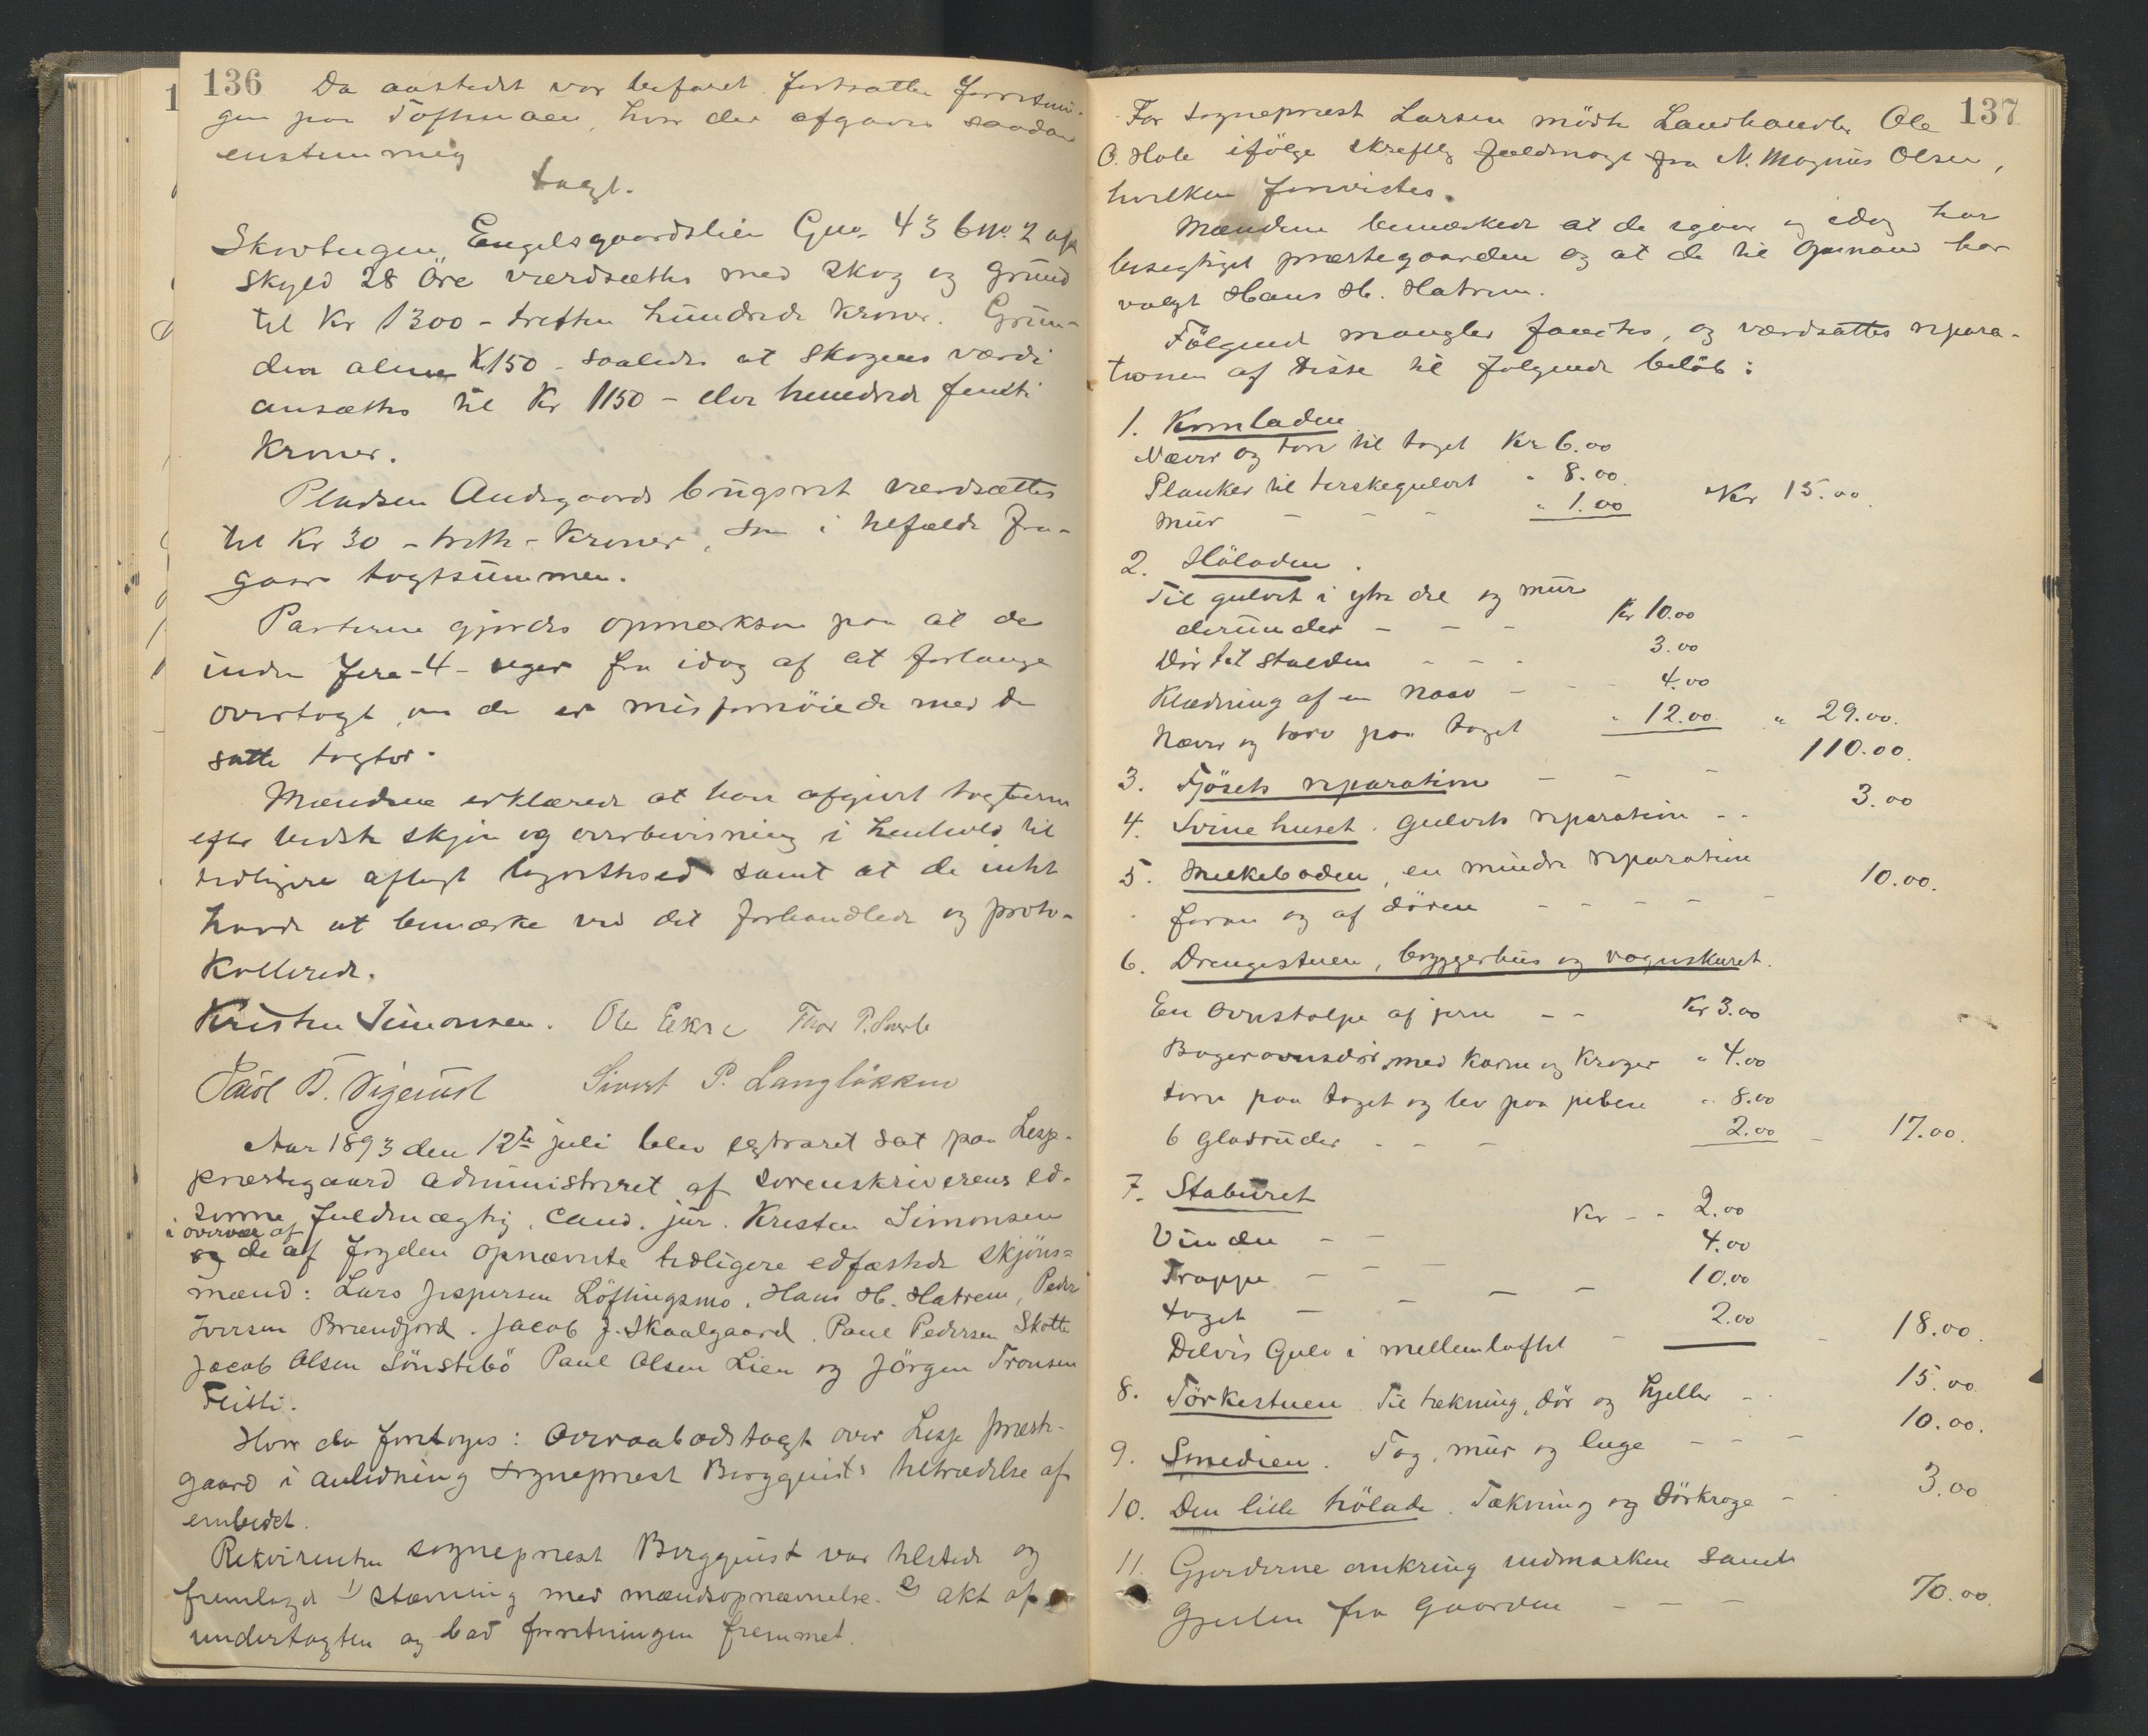 136 Da aastedet var befaret fortsattes forretnin-
gen paa Toftmoen, hvor der afgaves saadan
enstemmig
takst.
Skovteigen Engelsgaardslien Gno. 43 bno. 2 af
skyld 28 Öre værdsættes med skog og grund
til Kr 1300 - tretten hundrede kroner. Grun-
den alene Kr 150 - saaledes at skogens værdi
ansættes til Kr 1150 - elve hundrede femti
kroner.
Pladsen Andsgaards brugsret værdsættes
til Kr 30 - treti - kroner, som i tilfælde fra-
gaar taxtsummen.
Parterne gjordes opmerksom paa at de
inden fire - 4 - uger fra idag af at forlange
overtagt, om de er misfornöiede med de
satte taxter.
Mændene erklærede at have afgivet taxterne
efter bedste skjön og overbevisning i henhold til
tidligere aflagt lagretteed samt at de intet
havde at bemærke ved det forhandlede og proto-
kollerede.
Kristen Simonsen. Ole Ekre Thor P.
Paul T. Sigerust Sivert P. Langlökken
Aar 1893 den 12te juli blev extraret sat paa Lesje
prestegaard administreret af sorenskriverens ed-
svorne fuldmægtig, cand. jur. Kristen Simonsen
i overvær af
og de af fogden opnævnte tidligere edfæstede skjöns=
mænd: Lars Jespersen Löftingsmo, Hans H. Hatrem, Peder
Iversen Brændjord, Jacob J. Skaalgaard, Paul Pedersen Skotte
Jacob Olsen Sönstebö Paul Olsen Lien og Jörgen Tronsen
Flitti.
Hvor da foretoges: Overaabodstaxt over Lesje Preste-
gaard i anledning sogneprest Bergquists tiltrædelse af
embedet.
Rekvirenten sogneprest Bergquist var tilstede og
fremlagde 1) stævning med mandsopnævnelse. 2) akt af
undertaxten og bad forretningen fremmet.
137
For sogneprest Larsen mödte Landhandler Ole
O. Hole ifölge skreftlig fuldmagt fra N. Magnus Olsen,
hvilken forevistes.
Mændene bemærkede at de igaar og idag har
besigtiget prestegaarden og at de til Opmand har
valgt Hans H. Hatrem.
Fölgende mangler fandtes, og værdsattes repara-
tionen af disse til fölgende belöb:
1. Kornladen
Næver og torv til taget Kr 6.00
Planker til terskegulvet " 8.00
Mur - - - " 1.00 Kr 15.00
2. Höladen.
Til gulvet i ytre del og mur
derunder - - - Kr 10.00
Dör til stalden - - - 3.00
Klædning af en nov - - - 4.00
Næver og torv paa taget " 12.00 " 29.00.
3. Fjösets reparation - - - 110.00.
4. Svinehuset. Gulvets reparation - - 3.00
5. Melkeboden, en mindre reparation
foran og af dören - - - - - 10.00.
6. Drengestuen, bryggerhus og vognskuret.
En ovnstolpe af jern - - Kr 3.00
Bagerovnsdör med karm og kroger " 4.00
torv paa taget og lev paa piben " 8.00
6 gladruder - - - 2.00 - 17.00.
7. Staburet
Vinden - - Kr - - 2.00
Trappe - - - 4.00
taget - - - - 10.00
Delvis Gulv i mellemloftet - 2.00 - 18.00.
8. Törkestuen. Til tækning, dör og hjeller - - 15.00
9. Smedien. Tag, mur og luge - - - 10.00.
10. Den lille hölade. Tækning og dörkroge - 3.00
11. Gjerderne omkring indmarken samt
Gjeilen fra Gaarden - - - 70.00.